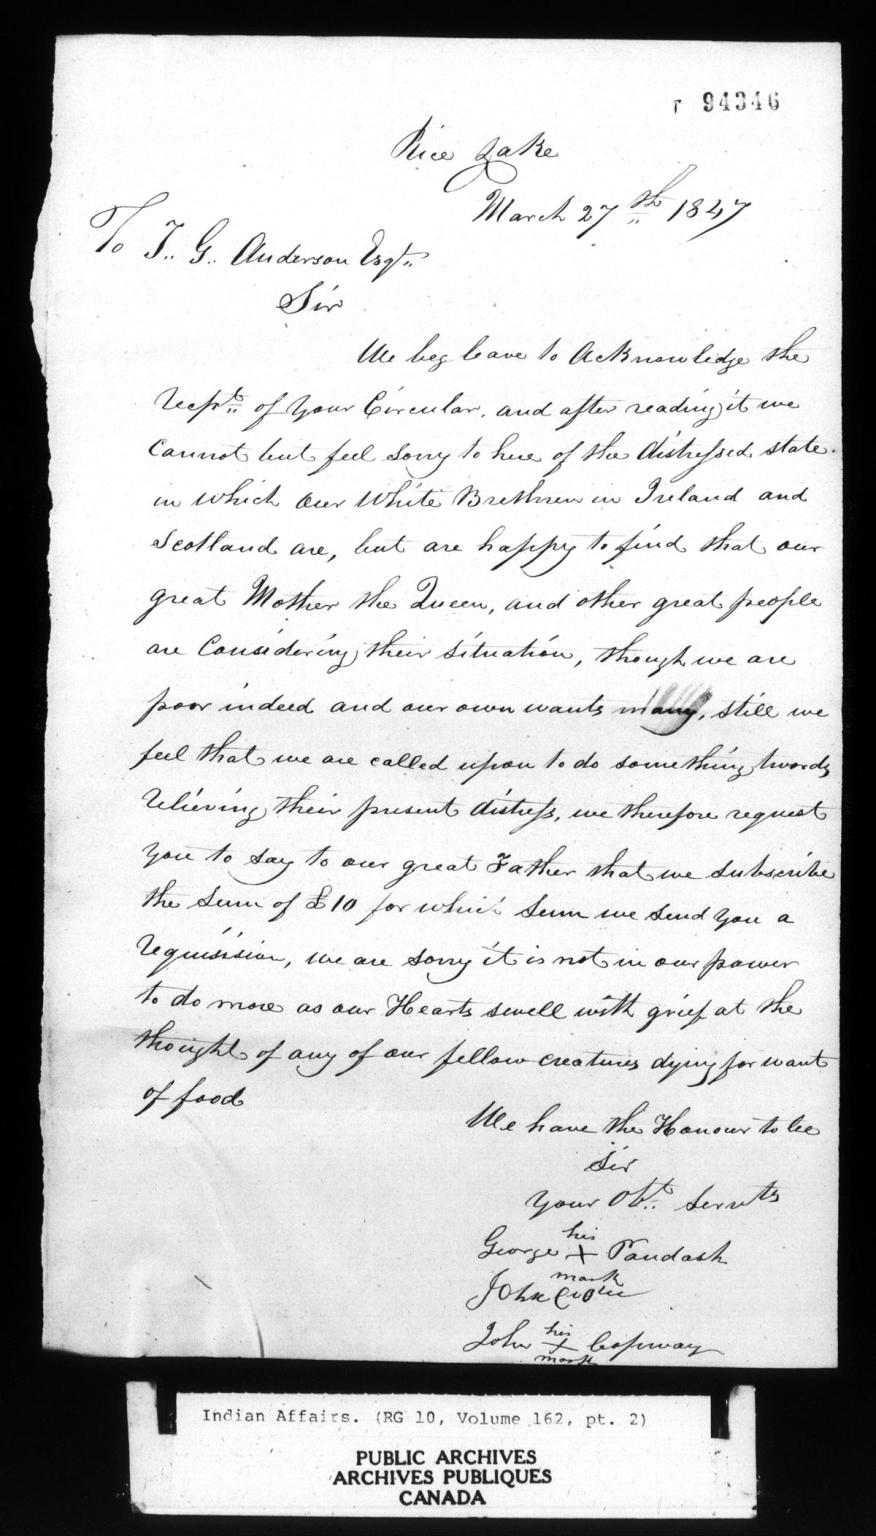 94346
Rice Lake
March 27th 1847
To T. G. Anderson Esqr
Sir
We beg leave to Acknowledge the
Recpt of your Circular, and after reading it we
Cannot but feel sorry to here of the distressed state
in which our White Brethren in Ireland and
Scotland are, but are happy to find that our
great Mother the Queen, and other great people
are Considering their situation, though we are
poor indeed and our own wants many, still we
feel that we are called upon to do something twords
relieving their present distress, we therefore request
you to say to our great Father that we subscribe
the Sum of £10 for which Sum we send you a
requisision, we are sorry it is not in our power
to do more as our Hearts swell with grief at the
thought of any of our fellow creatures dying for want
of food
We have the Honour to be
Sir
Your Obt. servts
George his X mark Paudash
John Crow
John his X mark Copway
Indian Affairs. (RG 10, Volume 162, pt. 2)
PUBLIC ARCHIVES
ARCHIVES PUBLIQUES
CANADA